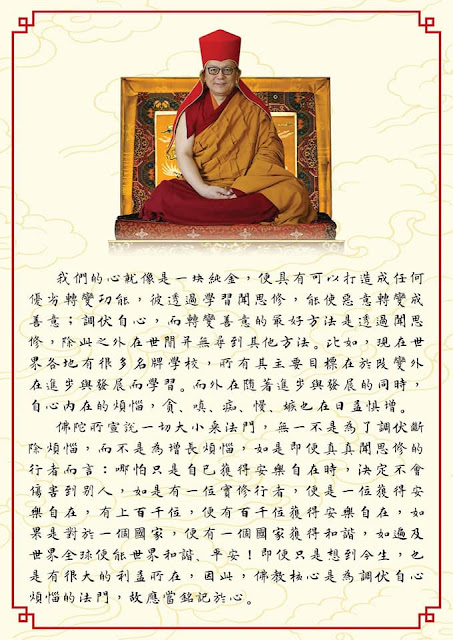 我們的心就像是一块純金，便具有可以打造成任何
優劣轉變功能，彼透過學習聞思修，能使惡意轉變成
善意；調伏自心，而轉變善意的最好方法是透過聞思
修，除此之外在世間并無尋到其他方法。比如，現在世
界各地有很多名牌學校，所有其主要目標在於改變外
在進步與發展而學習。而外在隨著進步與發展的同時，
自心內在的煩惱，貪、嗔、痴、慢、嫉也在日益俱增。
佛陀所宣說一切大小乘法門，無一不是為了調伏斷
除煩惱，而不是為增長煩惱，如是即使真真聞思修的
行者而言：哪怕只是自己獲得安樂自在時，決定不會
傷害到別人，如是有一位實修行者，便是一位獲得安
樂自在，有上百千位，便有百千位獲得安樂自在，如
果是對於一個國家，便有一個國家獲得和諧，如遍及
世界全球便能世界和諧、平安！即便只是想到今生，也
是有很大的利益所在，因此，佛教核心是為調伏自心
煩惱的法門，故應當銘記於心。